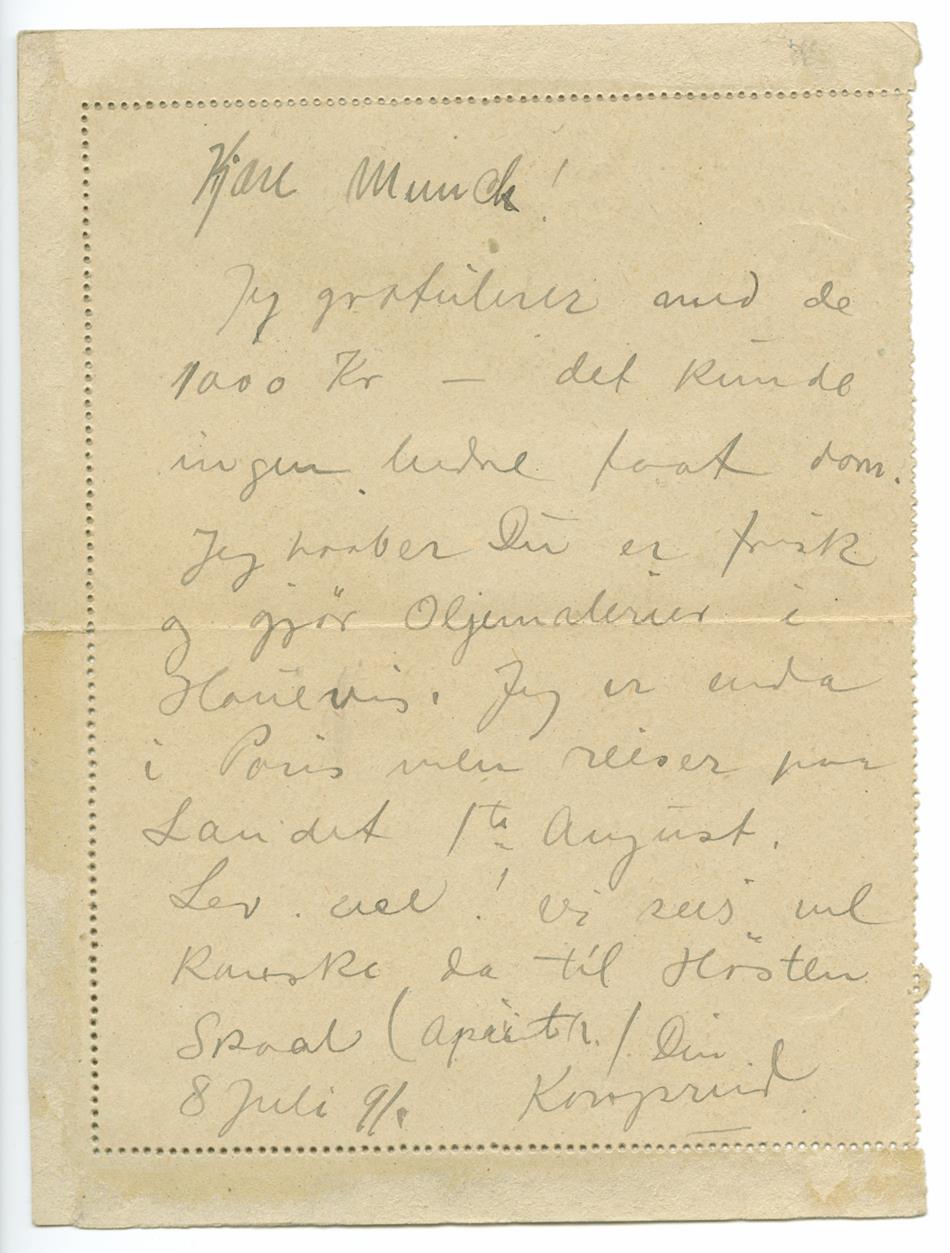 Kjære Munch!
Jeg gratulerer med de
1000 Kr — det kunde
ingen bedre faaet dom.
Jeg haaber Du er frisk
og gjör Oljemalerier i
Houevis. Jeg er enda
i Paris men reiser paa
Landet 1te August.
Lev vel! vi sees vel
kanske da til Hösten
Skaal ( ) Din
8 Juli 91.